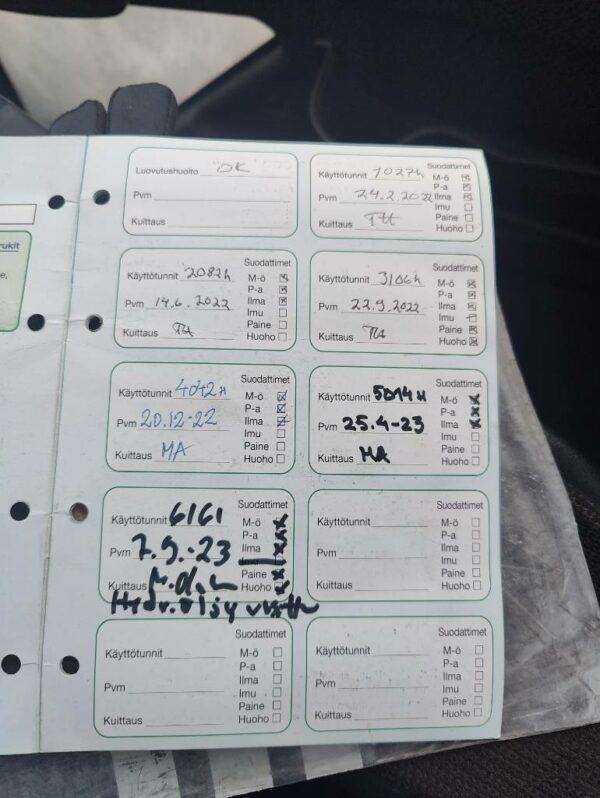 rukit
e,
Luovutushuolto OK
Pvm
Kuittaus
Suodattimet
Käyttötunnit 1027h M-ö
P-a
Pvm 24.2.2022 Ilma
Imu
Kuittaus Paine
Huoho
Suodattimet
Käyttötunnit 2082h M-ö
P-a
Pvm 14.6.2022 Ilma
Imu
Kuittaus Paine
Huoho
Suodattimet
Käyttötunnit 3106h M-ö
P-a
Pvm 22.9.2022 Ilma
Imu
Kuittaus Paine
Huoho
Suodattimet
Käyttötunnit 4042H M-ö
P-a
Pvm 20.12-22 Ilma
Imu
Kuittaus MA Paine
Huoho
Suodattimet
Käyttötunnit 5014H M-ö
P-a
Pvm 25.4-23 Ilma
Imu
Kuittaus MA Paine
Huoho
Suodattimet
Käyttötunnit 6161 M-ö
P-a
Pvm 7.9.-23 Ilma
Paine
Kuittaus Huoho
Hydr.öljy
Suodattimet
Käyttötunnit M-ö
P-a
Pvm Ilma
Imu
Kuittaus Paine
Huoho
Suodattimet
Käyttötunnit M-ö
P-a
Pvm Ilma
Imu
Kuittaus Paine
Huoho
Suodattimet
Käyttötunnit M-ö
P-a
Pvm Ilma
Imu
Kuittaus Paine
Huoho